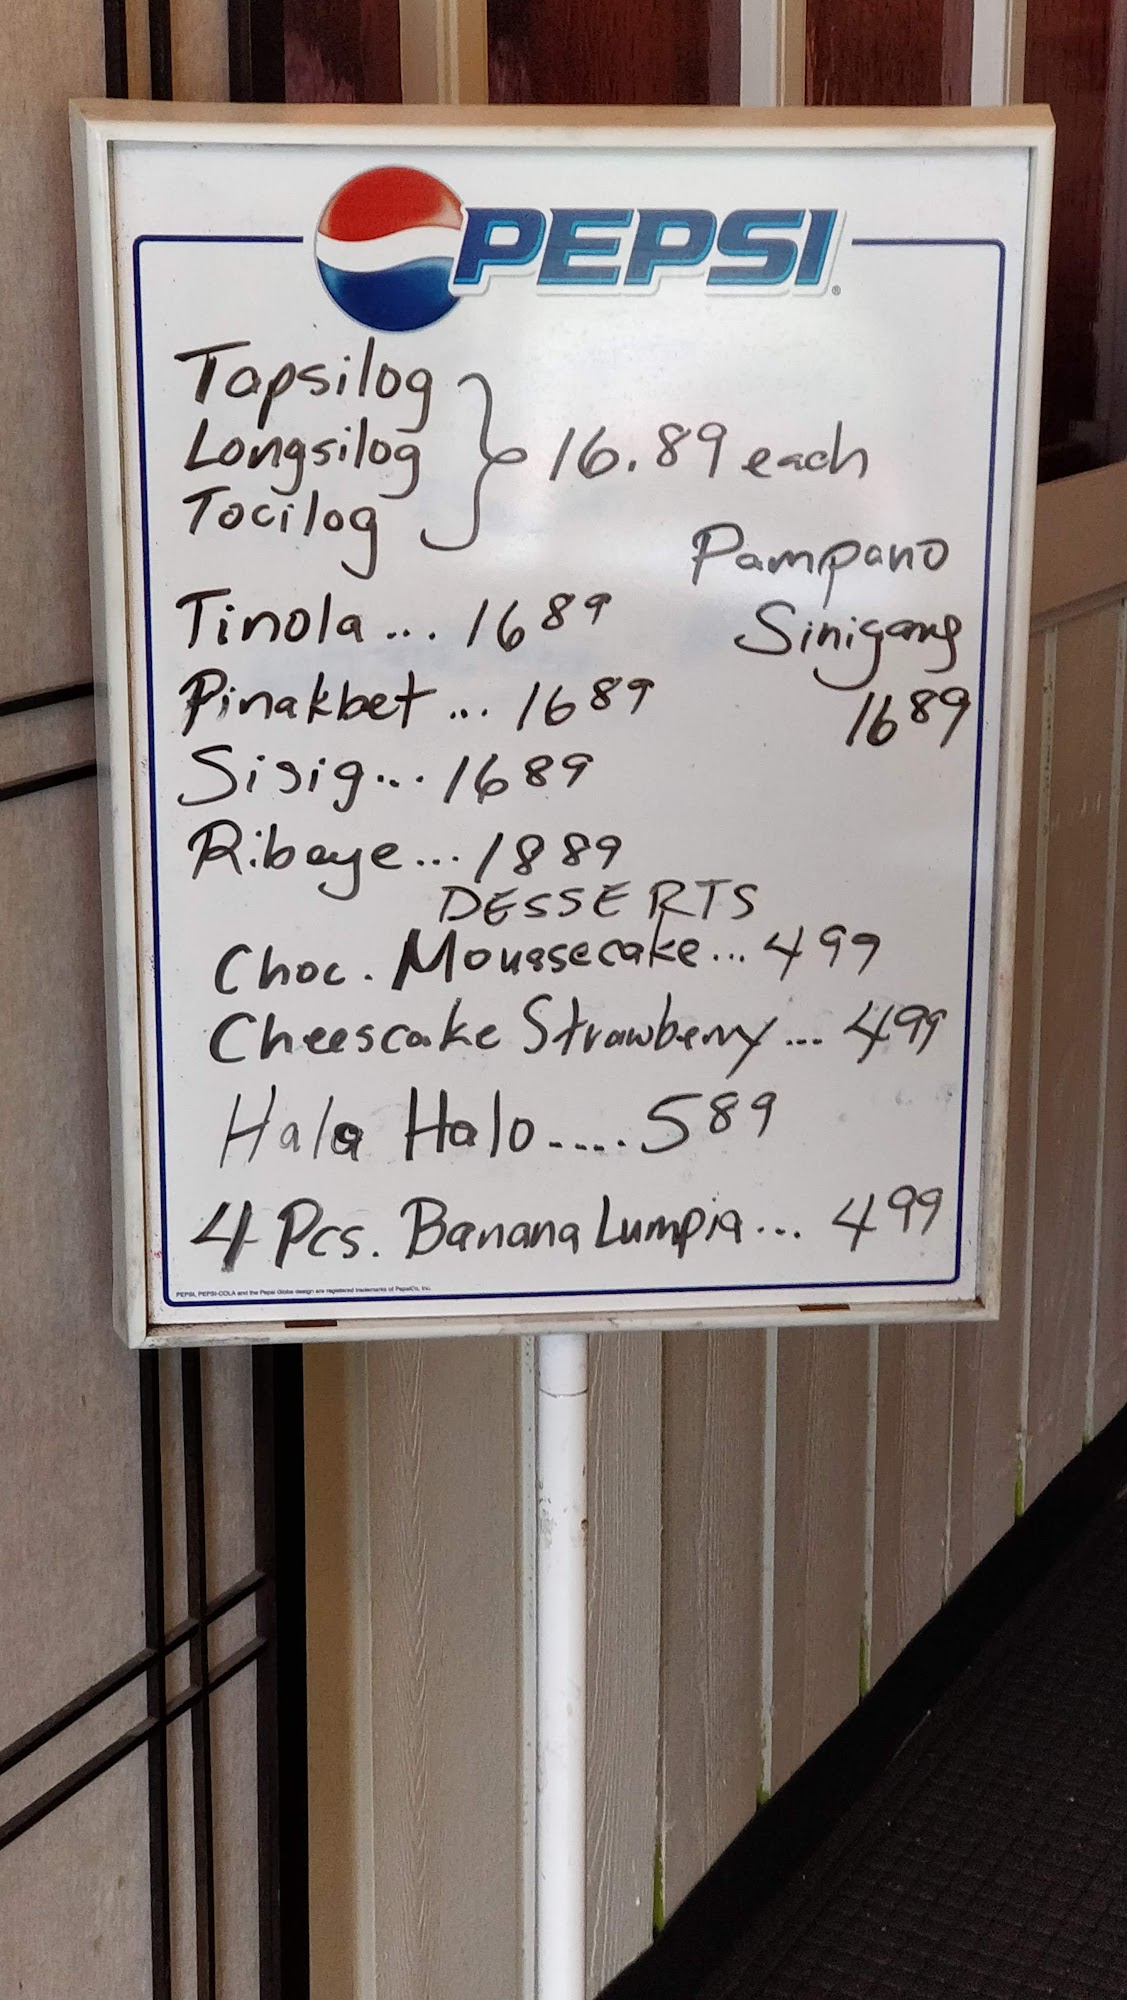 PEPSI
Tapsilog
Longsilog
Tocilog
16.89 each
Pampano
Sinigang
16 89
Tinola ... 16 89
Pinakbet ... 16 89
Sisig ... 16 89
Ribeye ... 18 89
DESSERTS
Choc. Moussecake ... 4 99
Cheescake Strawberry ... 4 99
Halo Halo ..... 5 89
4 Pcs. Banana Lumpia ... 4 99
PEPSI, PEPSI-COLA and the Pepsi Globe design are registered trademarks of PepsiCo, Inc.